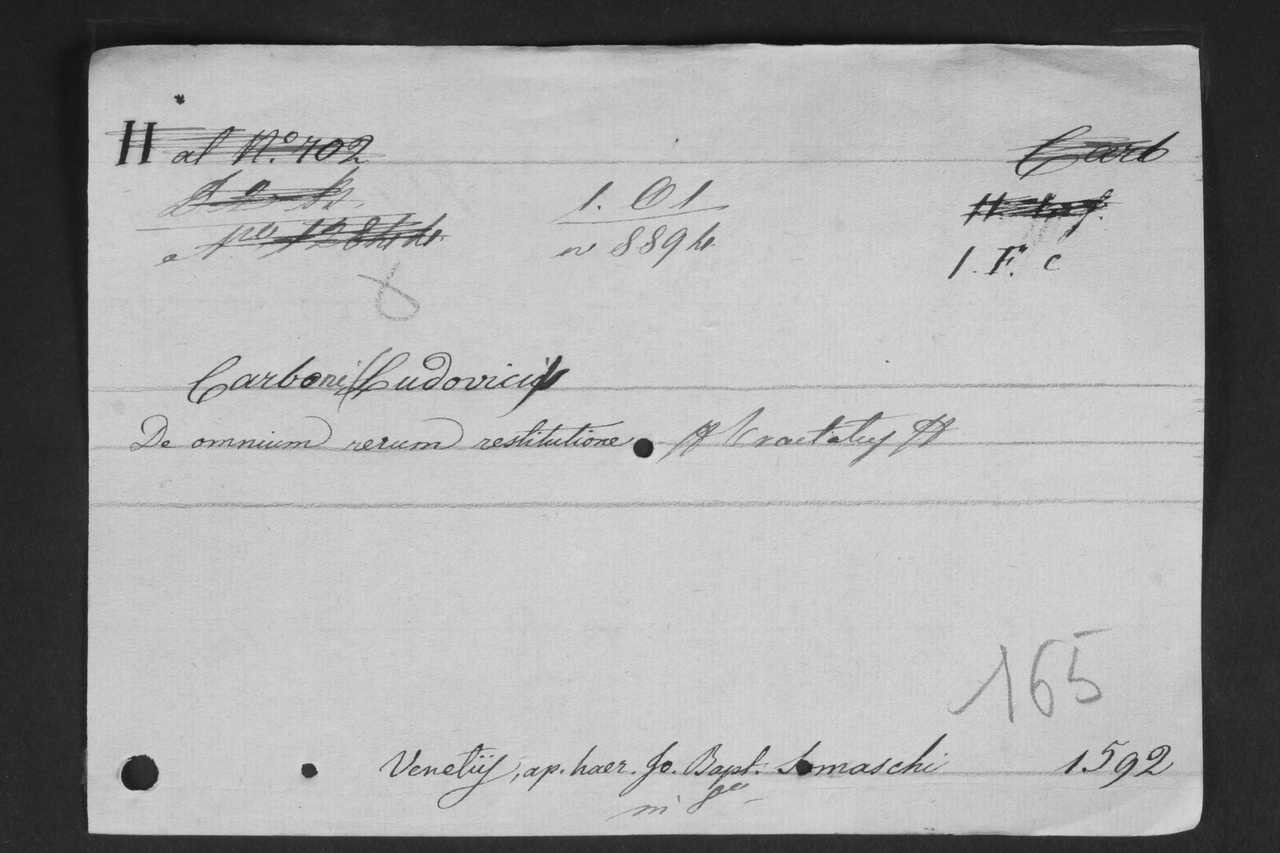 H al N.º 402 Carb
1. O 1
n 889 h.
1. F. c
Carboni (Ludovici)
De omnium rerum restitutione Tractatus
165
Venetiis, ap. haer. Jo. Bapt. Somaschi 1592